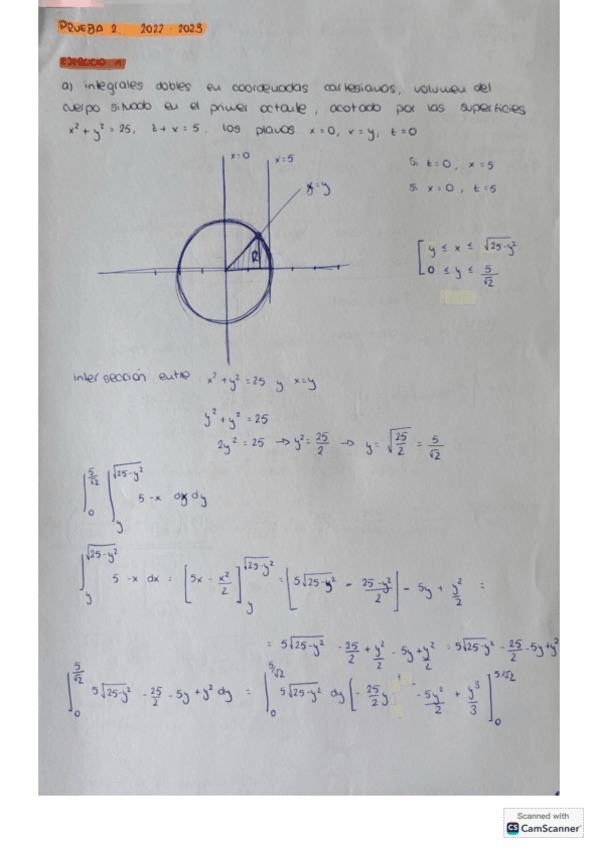 PRUEBA 2. 2022-2023
EJERCICIO 1
a) integrales dobles en coordenadas cartesianas, volumen del
cuerpo situado en el primer octante, acotado por las superficies
x² + y² = 25, z + x = 5. los planos x = 0, x = y, z = 0
x=0 x=5
x=y
R
Si z = 0, x = 5
Si x = 0, z = 5
[ y ≤ x ≤ √(25-y²)
0 ≤ y ≤ 5/√2
intersección entre x² + y² = 25 y x = y
y² + y² = 25
2y² = 25 → y² = 25/2 → y = √(25/2) = 5/√2
∫₀^(5/√2) ∫_y^(√(25-y²)) 5 - x dx dy
∫_y^(√(25-y²)) 5 - x dx = [5x - x²/2]_y^(√(25-y²)) = [5√(25-y²) - (25-y²)/2] - 5y + y²/2 =
= 5√(25-y²) - 25/2 + y²/2 - 5y + y²/2 = 5√(25-y²) - 25/2 - 5y + y²
∫₀^(5/√2) 5√(25-y²) - 25/2 - 5y + y² dy = ∫₀^(5/√2) 5√(25-y²) dy [-25/2 y - 5y²/2 + y³/3]₀^(5/√2)
Scanned with
CS CamScanner